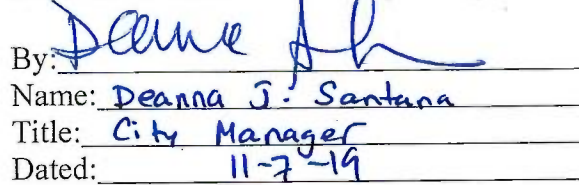 By: Deanna
Name: Deanna J. Santana
Title: City Manager
Dated: 11-7-19